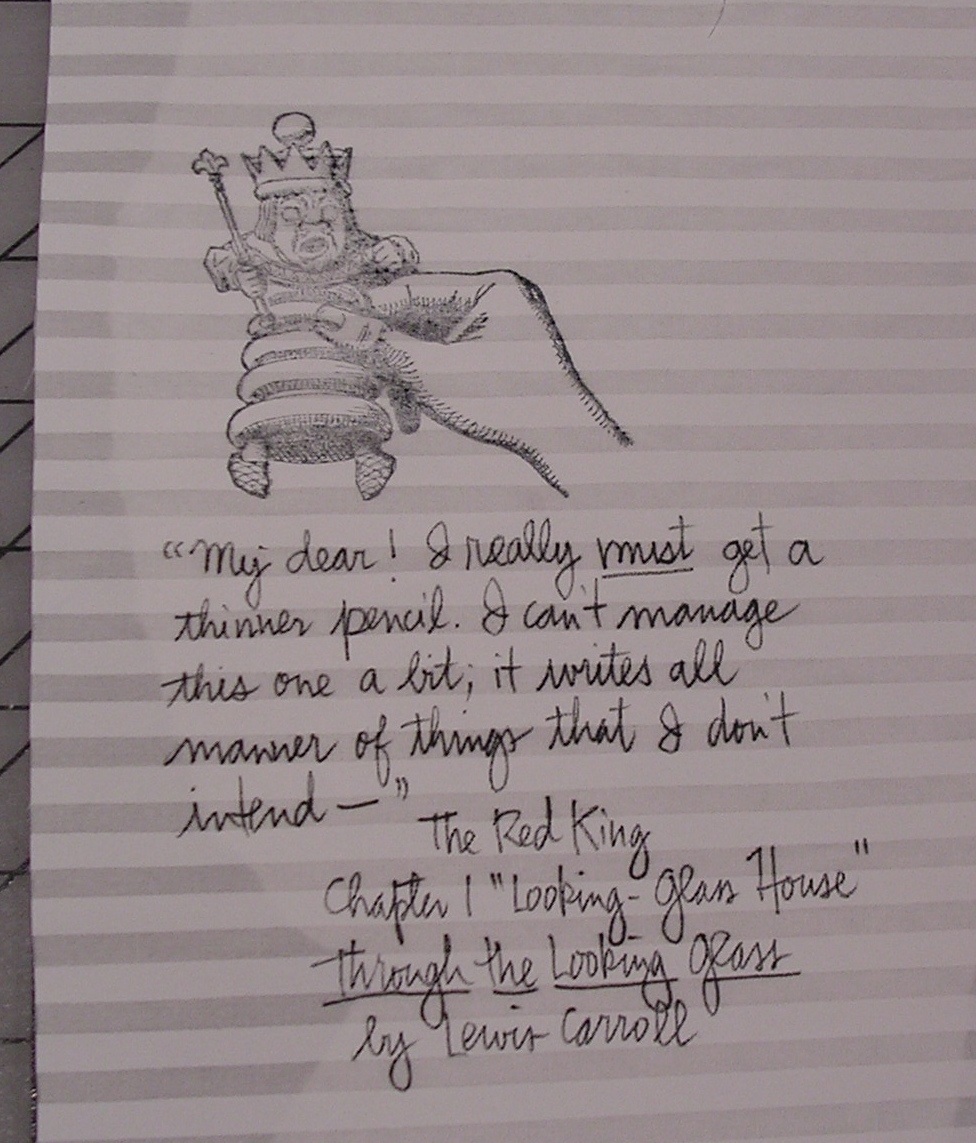 “My dear! I really must get a
thinner pencil. I can't manage
this one a bit; it writes all
manner of things that I don't
intend — ”
The Red King
Chapter 1 "Looking-Glass House"
Through the Looking Glass
by Lewis Carroll